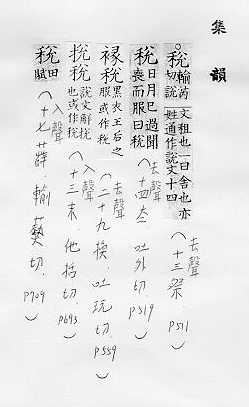 集韻
。稅輸芮切說文租也一曰舍也亦姓通作說文十四
(去聲 十三祭 P511)
稅日月已過聞喪而服曰稅
(去聲 十四夳 吐外切. P519)
褖稅黑衣王后之服或作稅
(去聲 二十九換. 吐玩切 P559)
挩稅說文解挩也或作稅
(入聲 十三末. 他括切. P693)
稅田賦
(入聲 十七薛. 輸爇切. P709)